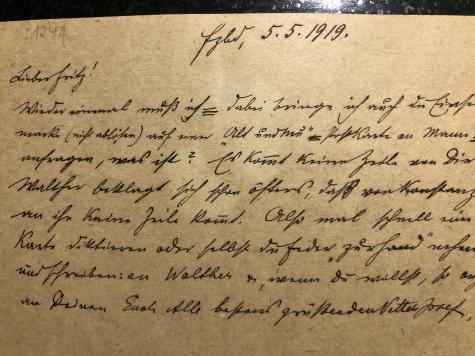 Fzbd, 5.5.1919.
Lieber Fritz!
Wieder einmal muß ich = dabei bringe ich auch die
marke (nicht ablösen) auf einer "Alt und Neu" = Postkarte an
anfragen, was ist? Es kommt keine Zeile von Dir
Walther beklagt sich schon öfters, daß von Konstanz
an ihn keine Zeile kommt. Also mal schnell eine
Karte diktieren oder selbst die Feder "zur Hand" nehmen
und schreiben: an Walther &, wenn Du willst, so
an Deinen Euch Alle bestens grüßenden Vetter Josef.